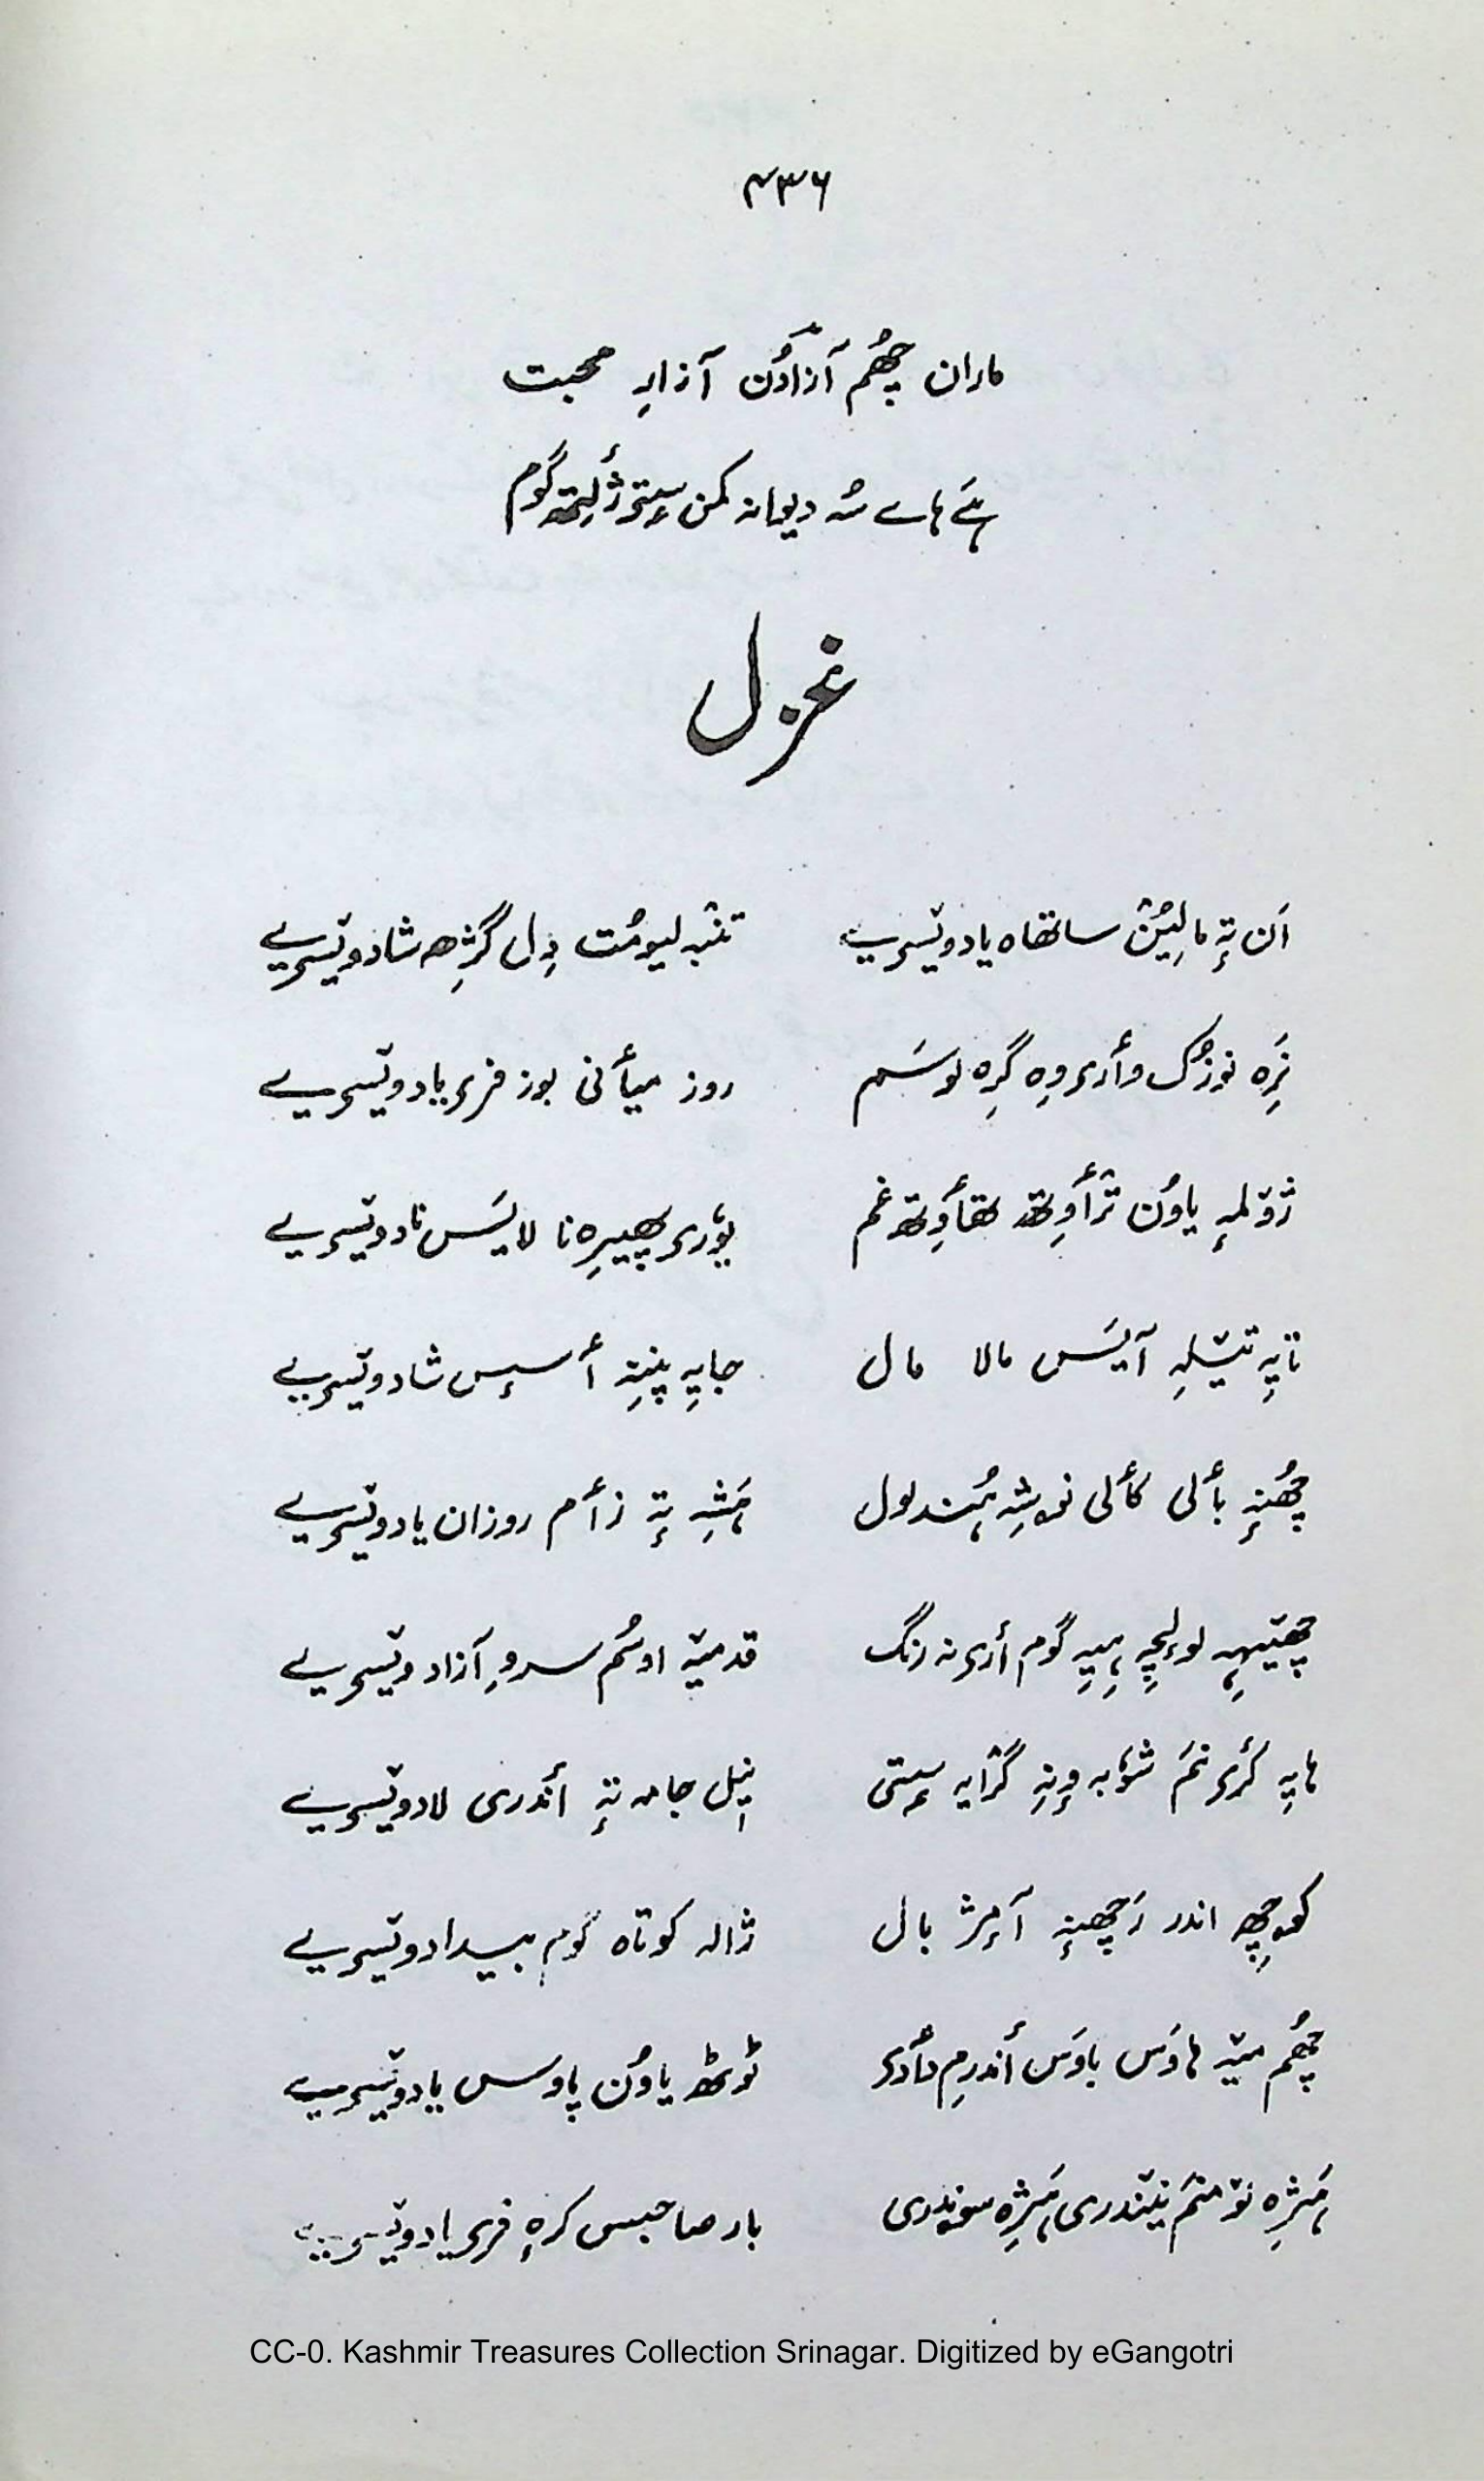 ۴۳۶
ماران چھُم آزادُن آزارِ محبت
ہَے ہاے سُہ دیوانہ کمن سٟتۍ ژٔلِتھ گوم
غزل
اَن تہٕ مالیُن ساتھاہ یاد ویٚسۍیے تنبہ لیومُت دِل گژِھ شاد ویٚسۍیے
نَرِہ نوزُک وأرۍ وِہ گرِہ لوسَم روز میأنی بوز فریاد ویٚسۍیے
ژوٚلمہٕ یاوُن ترٛأوِتھ تھأوِتھ غم پوٗرۍ پھیرِہ نا لایَس ناد ویٚسۍیے
تاپہِ تیٚلہِ آیَس مالا مال جایہِ پننہِ أسٕس شاد ویٚسۍیے
چھُنہٕ بألی کألی نوشہِ ہُند لول ہَشہِ تہٕ زأم روزان یاد ویٚسۍیے
لولچہِ ہیہِ گوم أرۍنہ رنگ قد میٚہ اوسُم سروِ آزاد ویٚسۍیے
ہایہِ کٔرۍنَم شوٗبہ ونہِ گرٛایہ سٟتی نیٖل جامہ تہٕ أندری لاد ویٚسۍیے
کوچھِ اندر رَچھنہٕ آمژ بال ژالہ کوتاہ گوم بیداد ویٚسۍیے
چھُم میٚہ ہاوَس باوَس أندرِم دأدۍ ٹوٹھ یاوُن پاوس یاد ویٚسۍیے
مَژِہ نوٚمنَم نیٚندری ہَژِہ سوندری بار صاحبس کرہٕ فریاد ویٚسۍیے
CC-0. Kashmir Treasures Collection Srinagar. Digitized by eGangotri